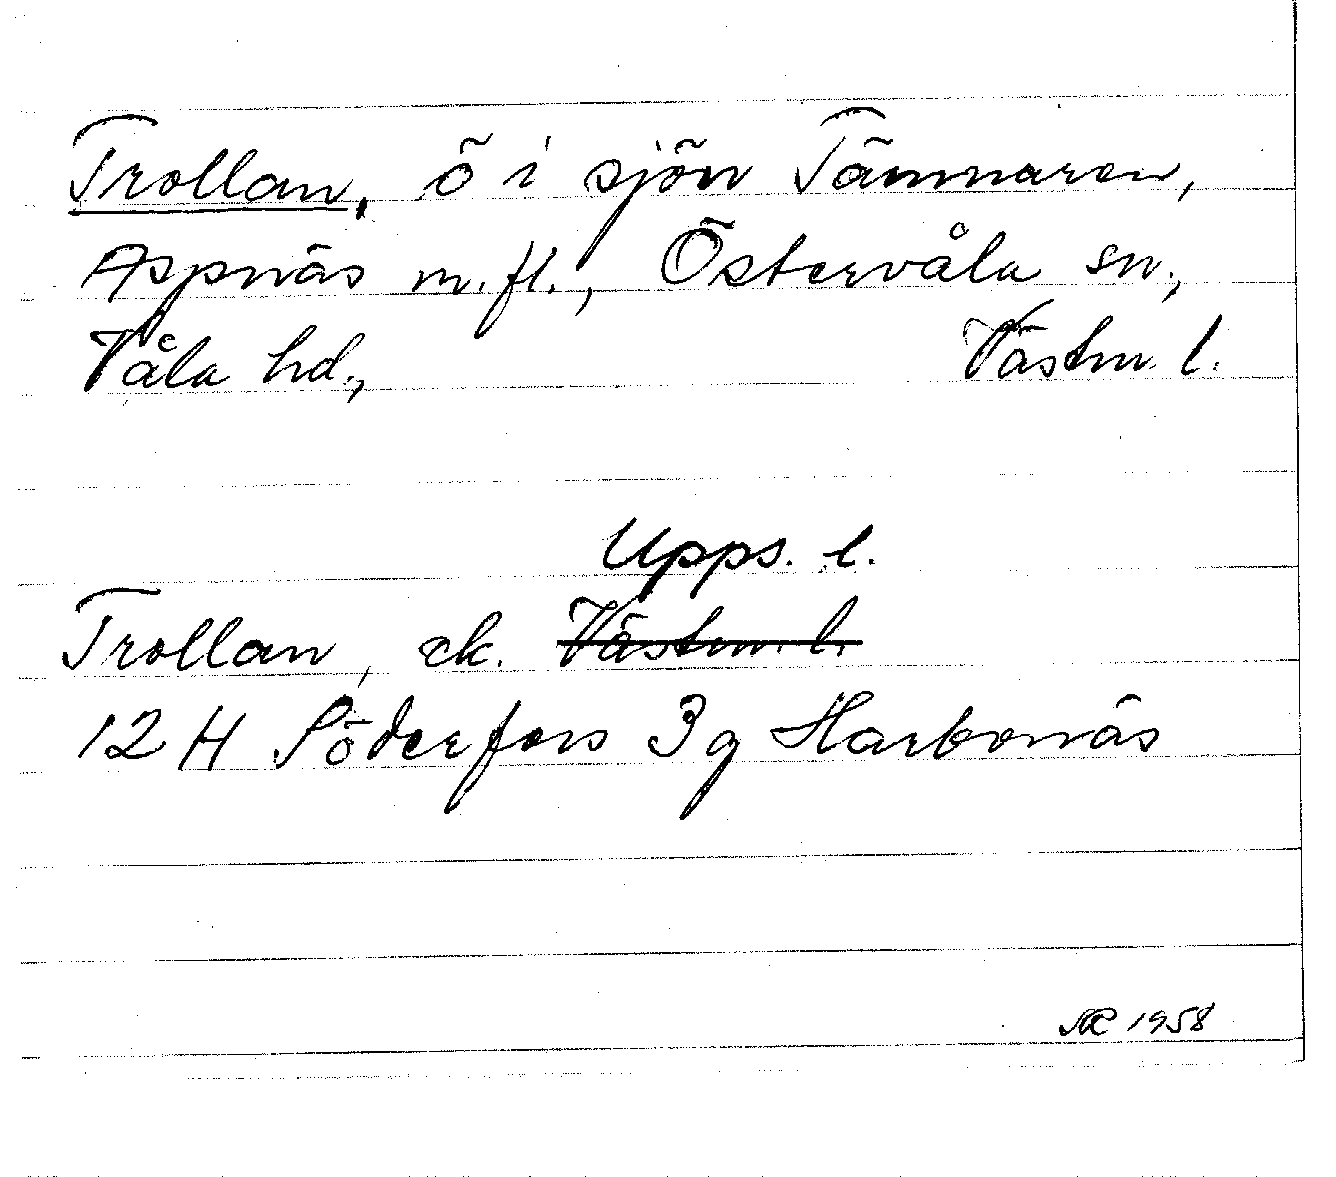 Trollan, ö i sjön Tämnaren,
Aspnäs m.fl., Östervåla sn.,
Våla hd., Västm. l.
Upps. l.
Trollan, ek. Västm. l.
12 H Söderfors 3 g Harbonäs
1958